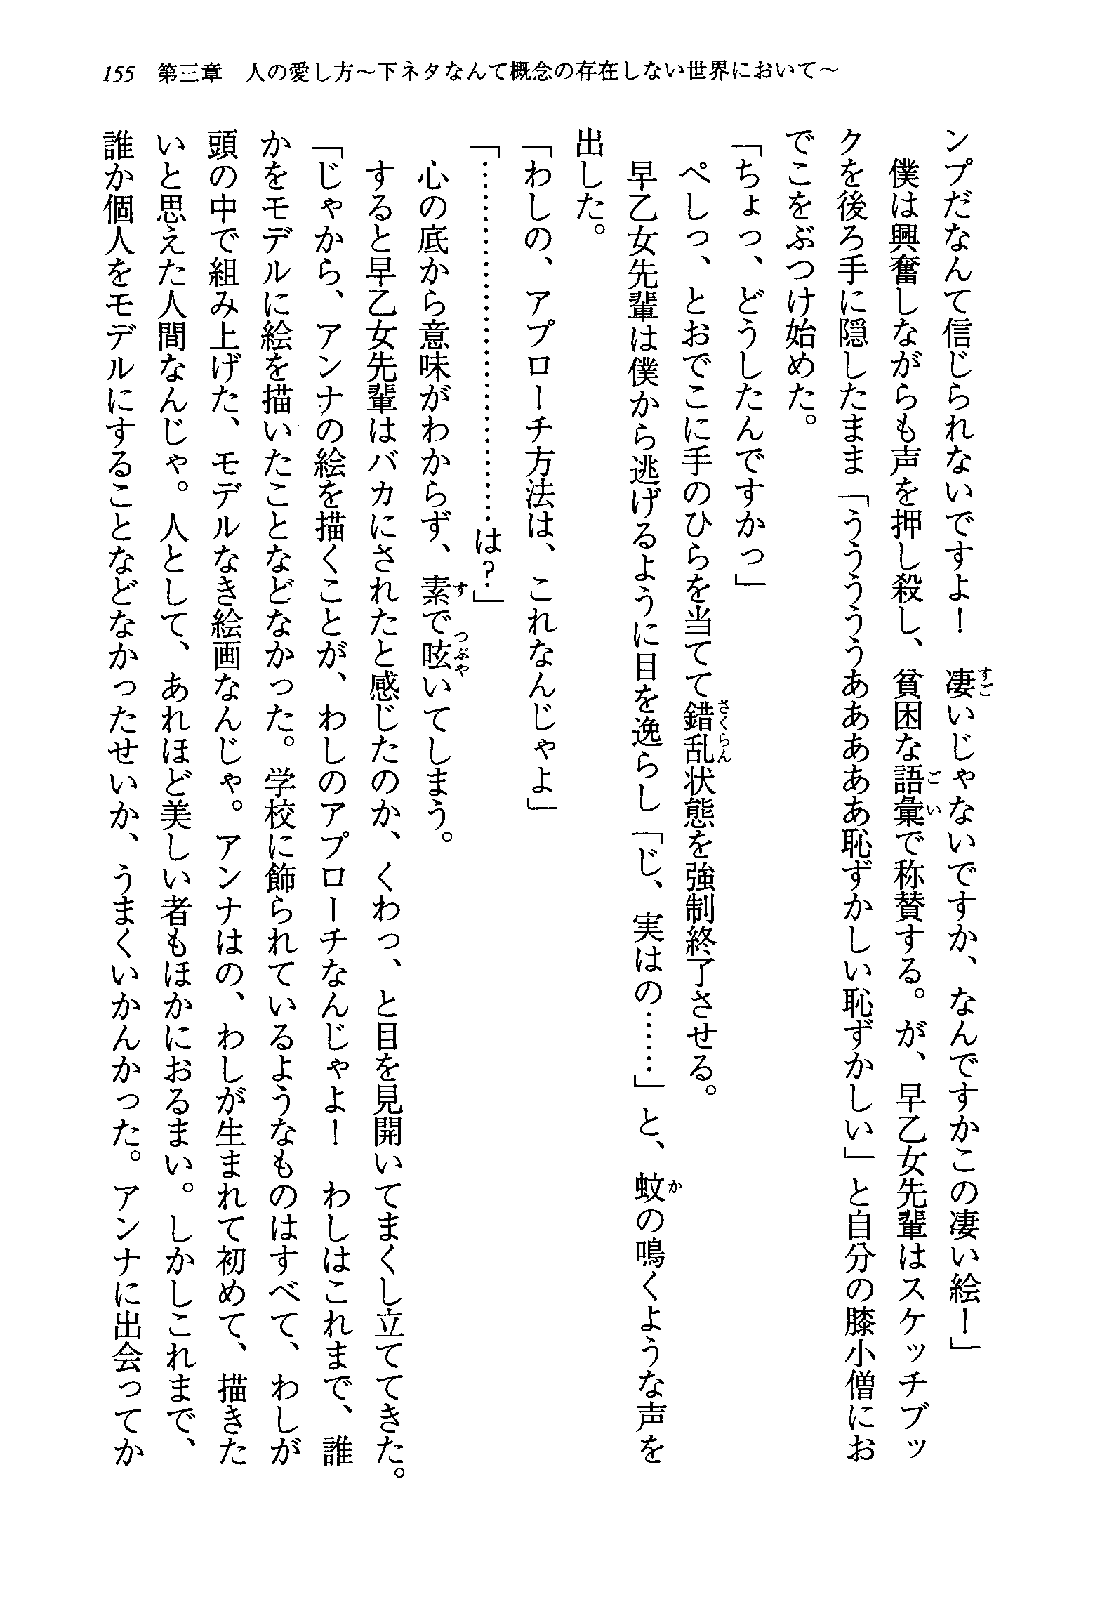 155 第三章 人の愛し方～下ネタなんて概念の存在しない世界において～
ンプだなんて信じられないですよ！ 凄いじゃないですか、なんですかこの凄い絵！」
僕は興奮しながらも声を押し殺し、貧困な語彙で称賛する。が、早乙女先輩はスケッチブッ
クを後ろ手に隠したまま「うううううああああ恥ずかしい恥ずかしい」と自分の膝小僧にお
でこをぶつけ始めた。
「ちょっ、どうしたんですかっ」
ぺしっ、とおでこに手のひらを当てて錯乱状態を強制終了させる。
早乙女先輩は僕から逃げるように目を逸らし「じ、実はの……」と、蚊の鳴くような声を
出した。
「わしの、アプローチ方法は、これなんじゃよ」
「………………………………は？」
心の底から意味がわからず、素で呟いてしまう。
すると早乙女先輩はバカにされたと感じたのか、くわっ、と目を見開いてまくし立ててきた。
「じゃから、アンナの絵を描くことが、わしのアプローチなんじゃよ！ わしはこれまで、誰
かをモデルに絵を描いたことなどなかった。学校に飾られているようなものはすべて、わしが
頭の中で組み上げた、モデルなき絵画なんじゃ。アンナはの、わしが生まれて初めて、描きた
いと思えた人間なんじゃ。人として、あれほど美しい者もほかにおるまい。しかしこれまで、
誰か個人をモデルにすることなどなかったせいか、うまくいかんかった。アンナに出会ってか